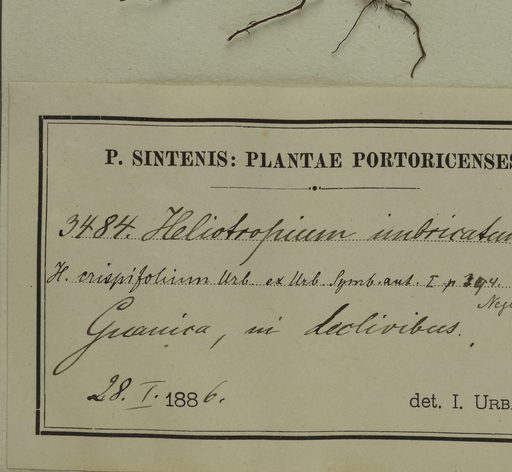 P. SINTENIS: PLANTAE PORTORICENSES
3484. Heliotropium imbricatum
H. crispifolium Urb. ex Urb. Symb. ant. I p 394.
Guanica, in declivibus.
28. I. 1886.
det. I. URB